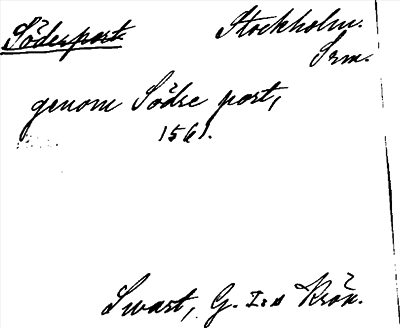 Söderport. Stockholm.
Srm.
genom Södre port,
1561.
Swart, G. I:s Krön.